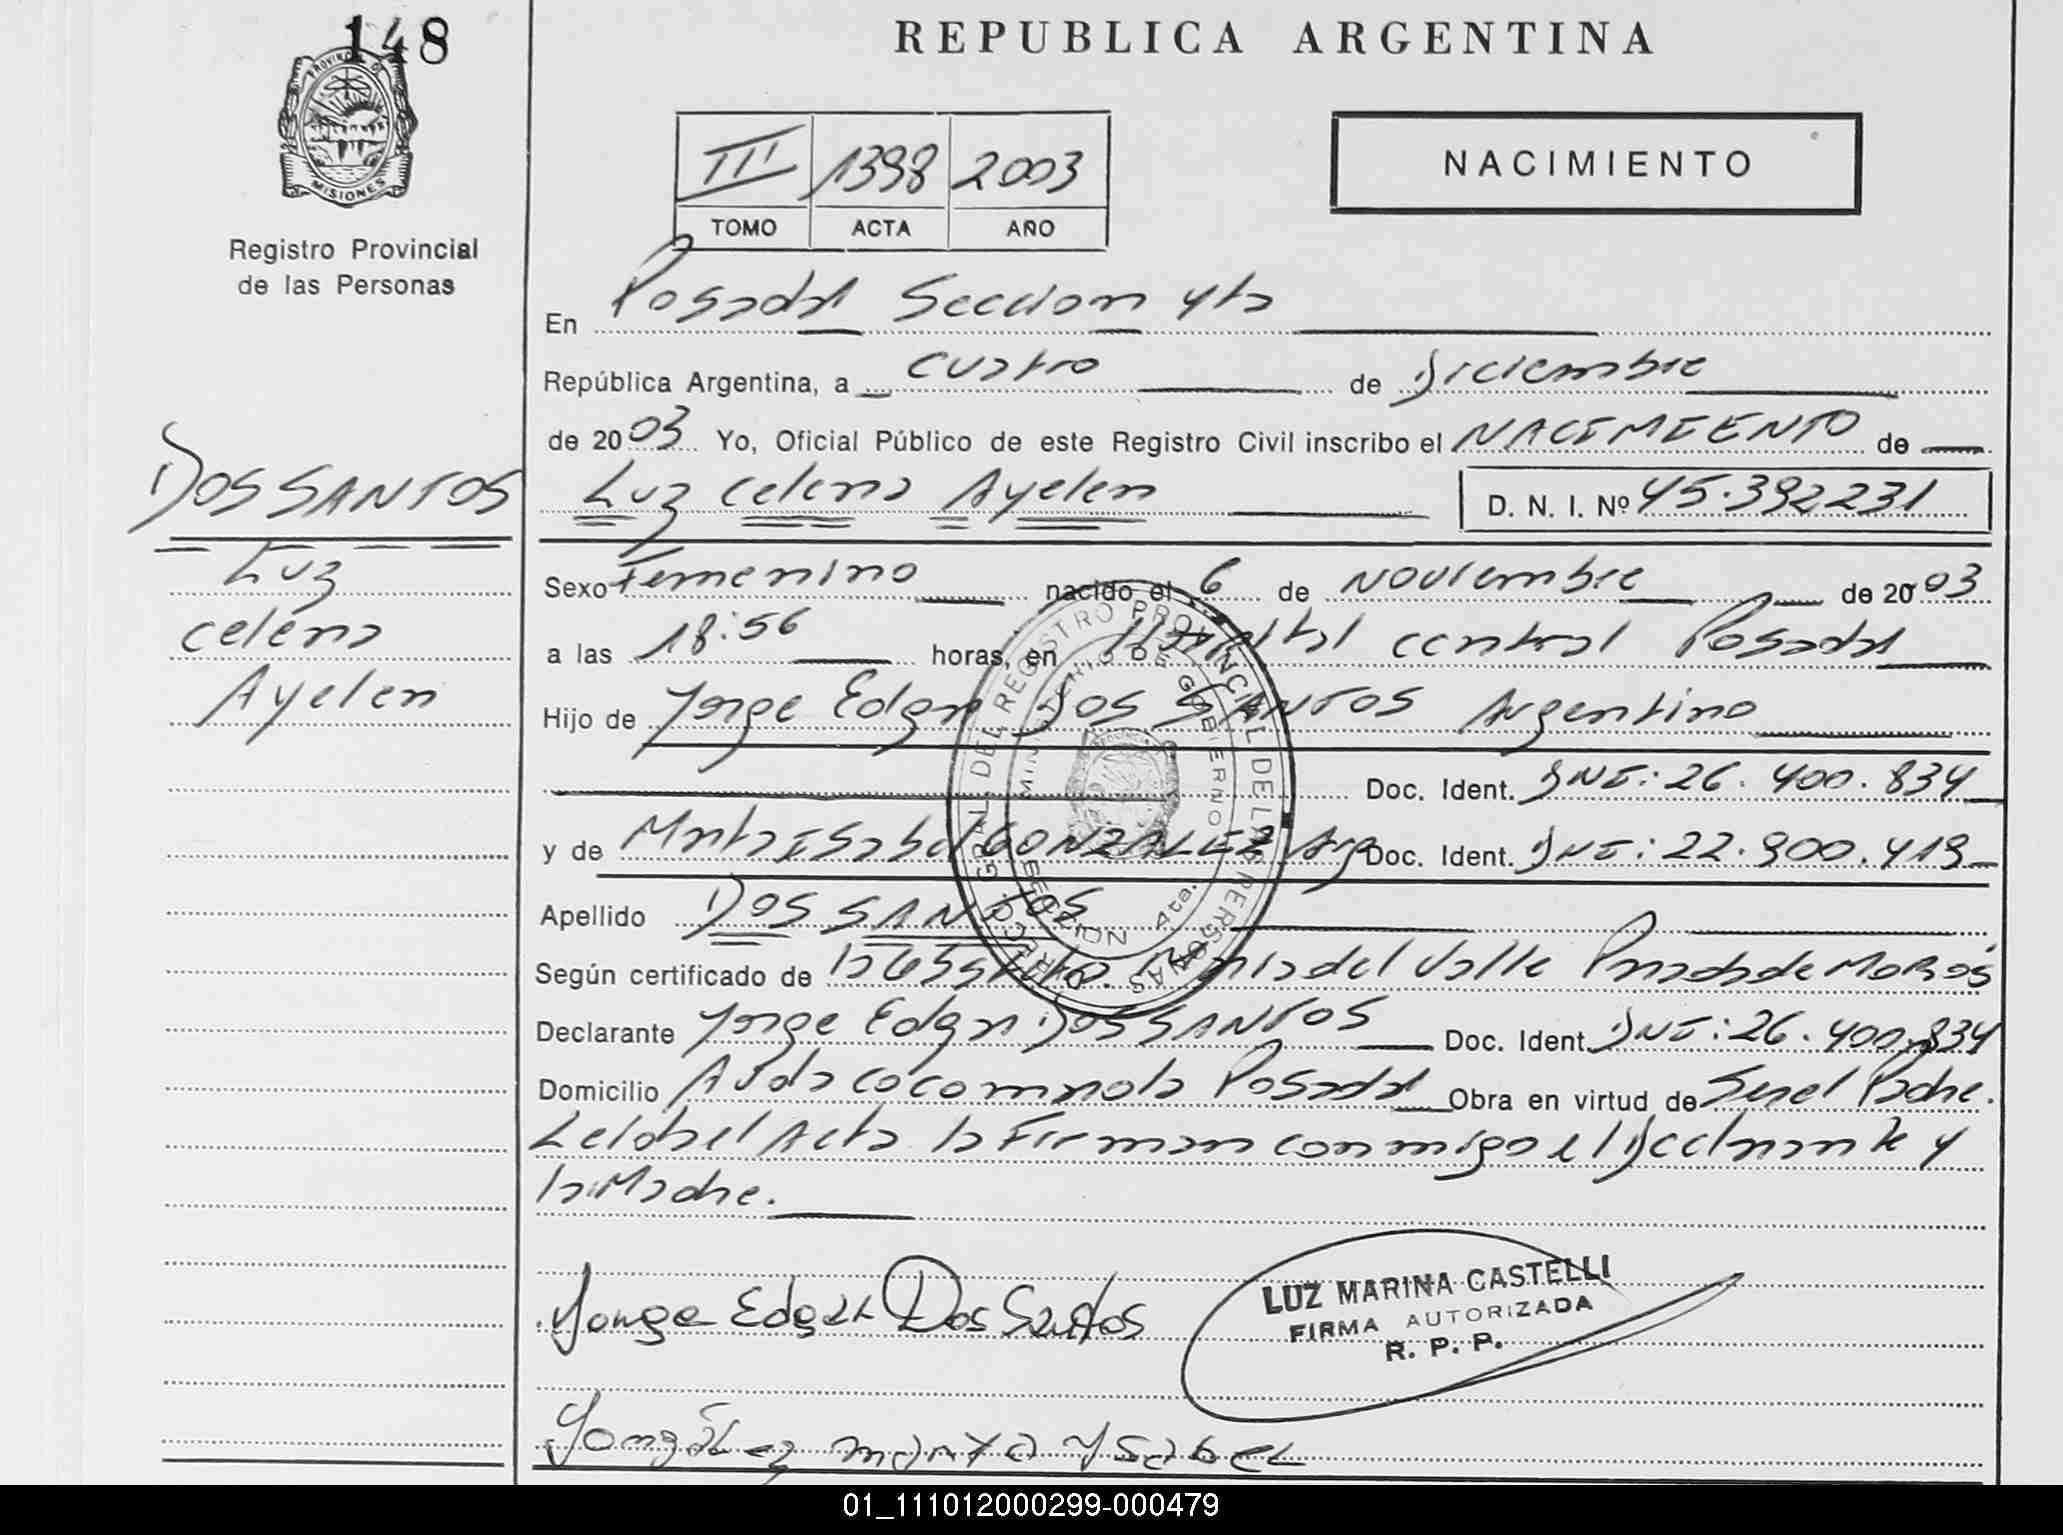 148
REPUBLICA ARGENTINA
PROVINCIA DE
MISIONES
Registro Provincial
de las Personas
III 1398 2003
TOMO ACTA AÑO
NACIMIENTO
En Posadas Seccion 4ta
República Argentina, a cuatro de Diciembre
de 2003 Yo, Oficial Público de este Registro Civil inscribo el NACIMIENTO de
Luz Celena Ayelen D. N. I. Nº 45.392231
DOS SANTOS
Luz
Celena
Ayelen
Sexo Femenino nacido el 6 de Noviembre de 2003
a las 18:56 horas, en Hospital central Posadas
Hijo de Jorge Edgar DOS SANTOS Argentino
Doc. Ident. DNI: 26.400.834
y de Marta Isabel GONZALEZ Arg Doc. Ident. DNI: 22.900.419
Apellido DOS SANTOS
Según certificado de la Obstetra. Maria del Valle Posadas de
Declarante Jorge Edgar DOS SANTOS Doc. Ident. DNI: 26.400.834
Domicilio Avda cocomarola Posadas Obra en virtud de Ser el Padre.
Leida el Acta la Firman conmigo el Declarante y
la Madre.
DIRECC. GRAL. DEL REGISTRO PROVINCIAL DE LAS PERSONAS
MINISTERIO DE GOBIERNO
SECCION 4ta.
Jorge Edgar Dos Santos
LUZ MARINA CASTELLI
FIRMA AUTORIZADA
R. P. P.
González marta Ysabel
01_111012000299-000479